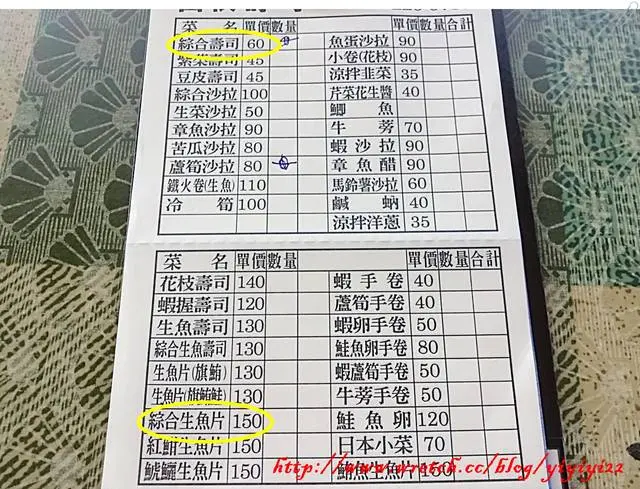 菜名 單價 數量 單價 數量 合計
綜合壽司 60 魚蛋沙拉 90
紫菜壽司 45 小卷(花枝) 90
豆皮壽司 45 涼拌韭菜 35
綜合沙拉 100 芹菜花生醬 40
生菜沙拉 50 鯽魚
章魚沙拉 90 牛蒡 70
苦瓜沙拉 80 蝦沙拉 90
蘆筍沙拉 80 章魚醋 90
鐵火卷(生魚) 110 馬鈴薯沙拉 60
冷筍 100 鹹蚋 40
涼拌洋蔥 35
菜名 單價 數量 單價 數量 合計
花枝壽司 140 蝦手卷 40
蝦握壽司 120 蘆筍手卷 40
生魚壽司 130 蝦卵手卷 50
綜合生魚壽司 130 鮭魚卵手卷 80
生魚片(旗鮪) 130 蝦蘆筍手卷 50
生魚片(旗鮪鮭) 130 牛蒡手卷 50
綜合生魚片 150 鮭魚卵 120
紅魽生魚片 150 日本小菜 70
生魚片 150 生魚片 150
http://www.wretch.cc/blog/yiyiyi22